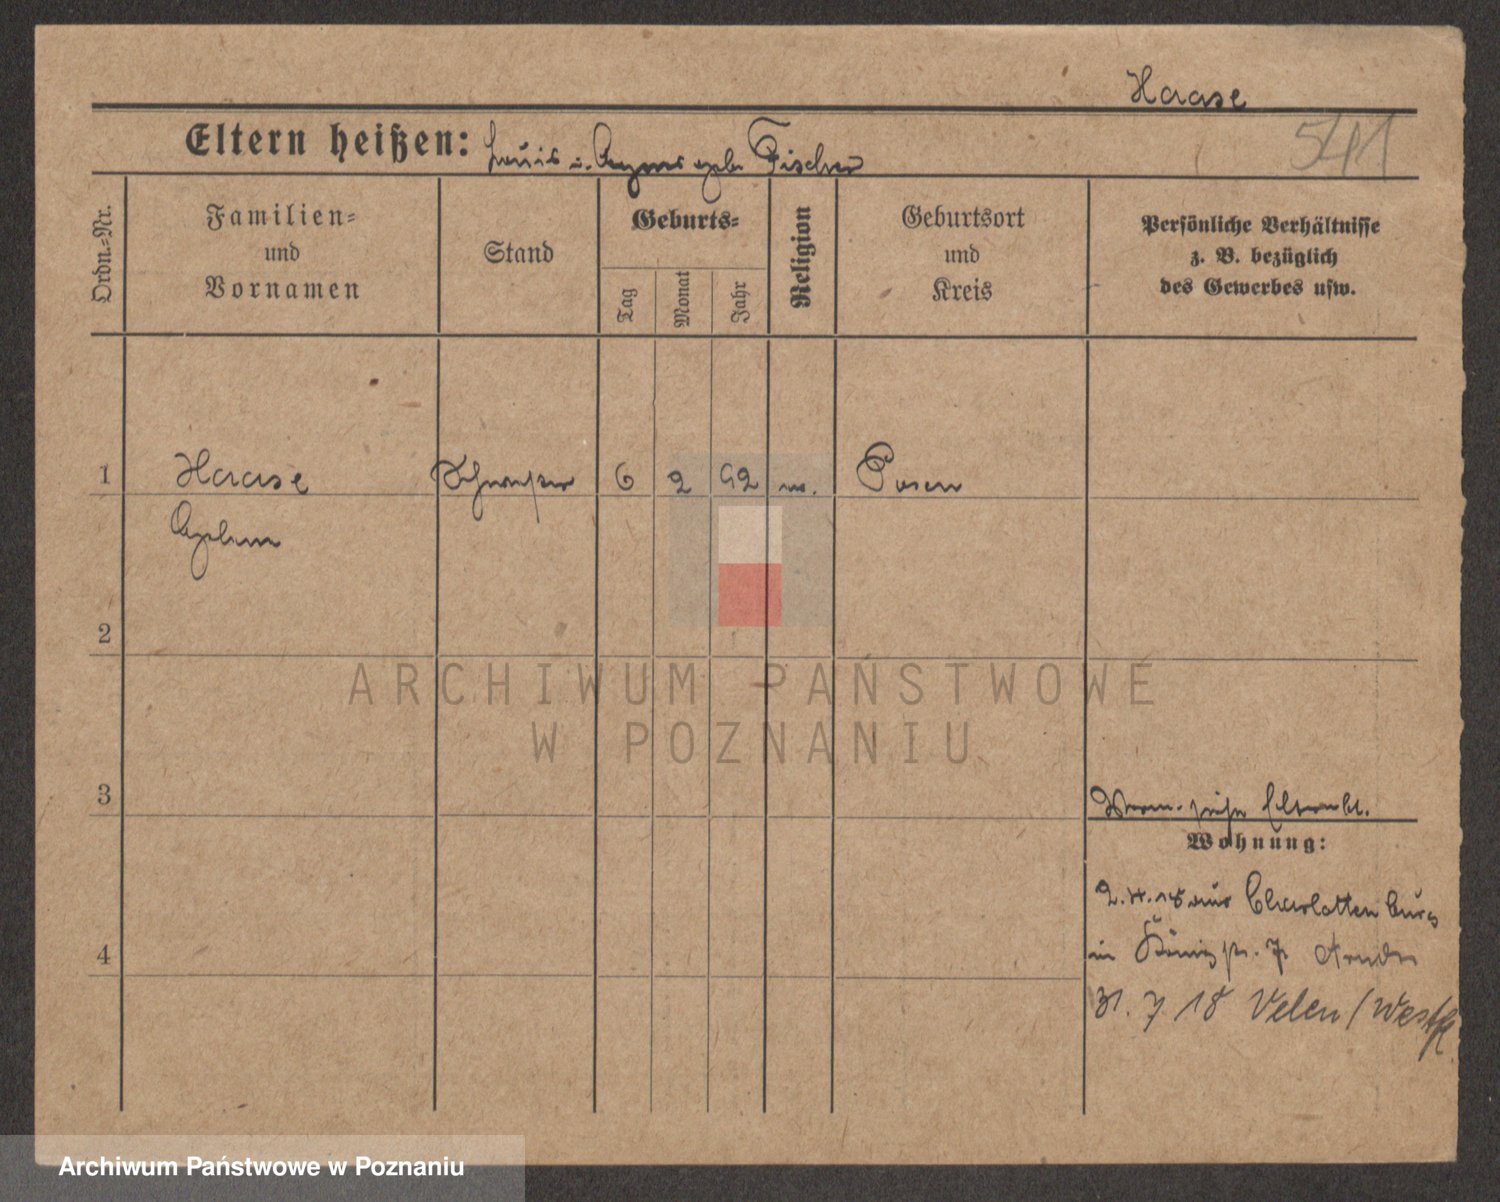 Haase
541
Eltern heißen: Louis u. Agnes geb. Fischer
Ordn.=Nr.
Familien=
und
Vornamen
Stand
Geburts=
Tag
Monat
Jahr
Religion
Geburtsort
und
Kreis
Persönliche Verhältnisse
z. B. bezüglich
des Gewerbes usw.
1 Haase 6 2 92 Posen
2
ARCHIWUM PAŃSTWOWE
W POZNANIU
3
Wohnung:
2. 18 aus Charlottenburg
4 in Königstr. 7
31. 7 18 Velen / Westf
Archiwum Państwowe w Poznaniu